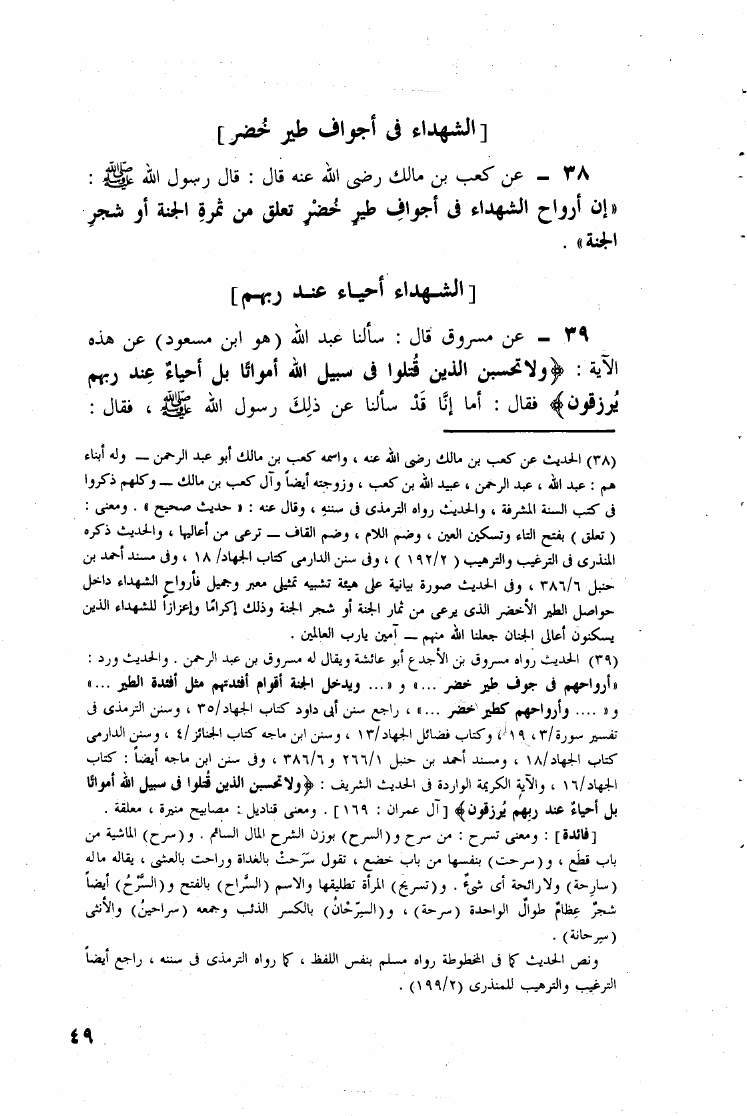 [الشهداء فى أجواف طير خُضر]
٣٨ – عن كعب بن مالك رضى الله عنه قال : قال رسول الله ﷺ :
«إن أرواح الشهداء فى أجوافِ طيرٍ خُضْرٍ تعلق من ثمرةِ الجنة أو شجرِ
الجنة» .
[الشهداء أحياء عند ربهم]
٣٩ – عن مسروق قال : سألنا عبد الله (هو ابن مسعود) عن هذه
الآية : ﴿ولاتحسبن الذين قُتلوا فى سبيل الله أمواتًا بل أحياءٌ عِند ربهم
يُرزقون﴾ فقال : أما إنَّا قَدْ سألنا عن ذلِكَ رسول الله ﷺ ، فقال :
(٣٨) الحديث عن كعب بن مالك رضى الله عنه ، واسمه كعب بن مالك أبو عبد الرحمن — وله أبناء
هم : عبد الله ، عبد الرحمن ، عبيد الله بن كعب ، وزوجته أيضاً وآل كعب بن مالك — وكلهم ذكروا
فى كتب السنة المشرفة ، والحديث رواه الترمذى فى سننه ، وقال عنه : « حديث صحيح » . ومعنى :
( تعلق ) بفتح التاء وتسكين العين ، وضم اللام ، وضم القاف — ترعى من أعاليها ، والحديث ذكره
المنذرى فى الترغيب والترهيب ( ١٩٢/٢ ) ، وفى سنن الدارمى كتاب الجهاد/ ١٨ ، وفى مسند أحمد بن
حنبل ٣٨٦/٦ ، وفى الحديث صورة بيانية على هيئة تشبيه تمثيلى معبر وجميل فأرواح الشهداء داخل
حواصل الطير الأخضر الذى يرعى من ثمار الجنة أو شجر الجنة وذلك إكرامًا وإعزازاً للشهداء الذين
يسكنون أعالى الجنان جعلنا الله منهم — آمين يارب العالمين .
(٣٩) الحديث رواه مسروق بن الأجدع أبو عائشة ويقال له مسروق بن عبد الرحمن . والحديث ورد :
«أرواحهم فى جوف طير خضر ...» و «... ويدخل الجنة أقوام أفئدتهم مثل أفئدة الطير ...»
و« .... وأرواحهم كطير خضر ...» ، راجع سنن أبى داود كتاب الجهاد/٣٥ ، وسنن الترمذى فى
تفسير سورة/٣ ، ١٩ ، وكتاب فضائل الجهاد/١٣ ، وسنن ابن ماجه كتاب الجنائز/٤ ، وسنن الدارمى
كتاب الجهاد/١٨ ، ومسند أحمد بن حنبل ٢٦٦/١ و ٣٨٦/٦ ، وفى سنن ابن ماجه أيضاً : كتاب
الجهاد/١٦ ، والآية الكريمة الواردة فى الحديث الشريف : ﴿ولاتحسبن الذين قُتلوا فى سبيل الله أمواتًا
بل أحياءٌ عند ربهم يُرزقون﴾ [آل عمران : ١٦٩] . ومعنى قناديل : مصابيح منيرة ، معلقة .
[فائدة] : ومعنى تسرح : من سرح و(السرح) بوزن الشرح المال السائم . و(سرح) الماشية من
باب قطَع ، و(سرحت) بنفسها من باب خضع ، تقول سَرَحتْ بالغداة وراحت بالعشى ، يقاله ماله
(سارِحة) ولارائحة أى شىءٌ . و(تسريح) المرأة تطليقها والاسم (السَّراح) بالفتح و(السَّرْحُ) أيضاً
شجرٌ عِظامٌ طوالٌ الواحدة (سرحة) ، و(السِرّحْانُ) بالكسر الذئب وجمعه (سراحينُ) والأنثى
(سِرحانة) .
ونص الحديث كما فى المخطوطة رواه مسلم بنفس اللفظ ، كما رواه الترمذى فى سننه ، راجع أيضاً
الترغيب والترهيب للمنذرى (١٩٩/٢) .
٤٩